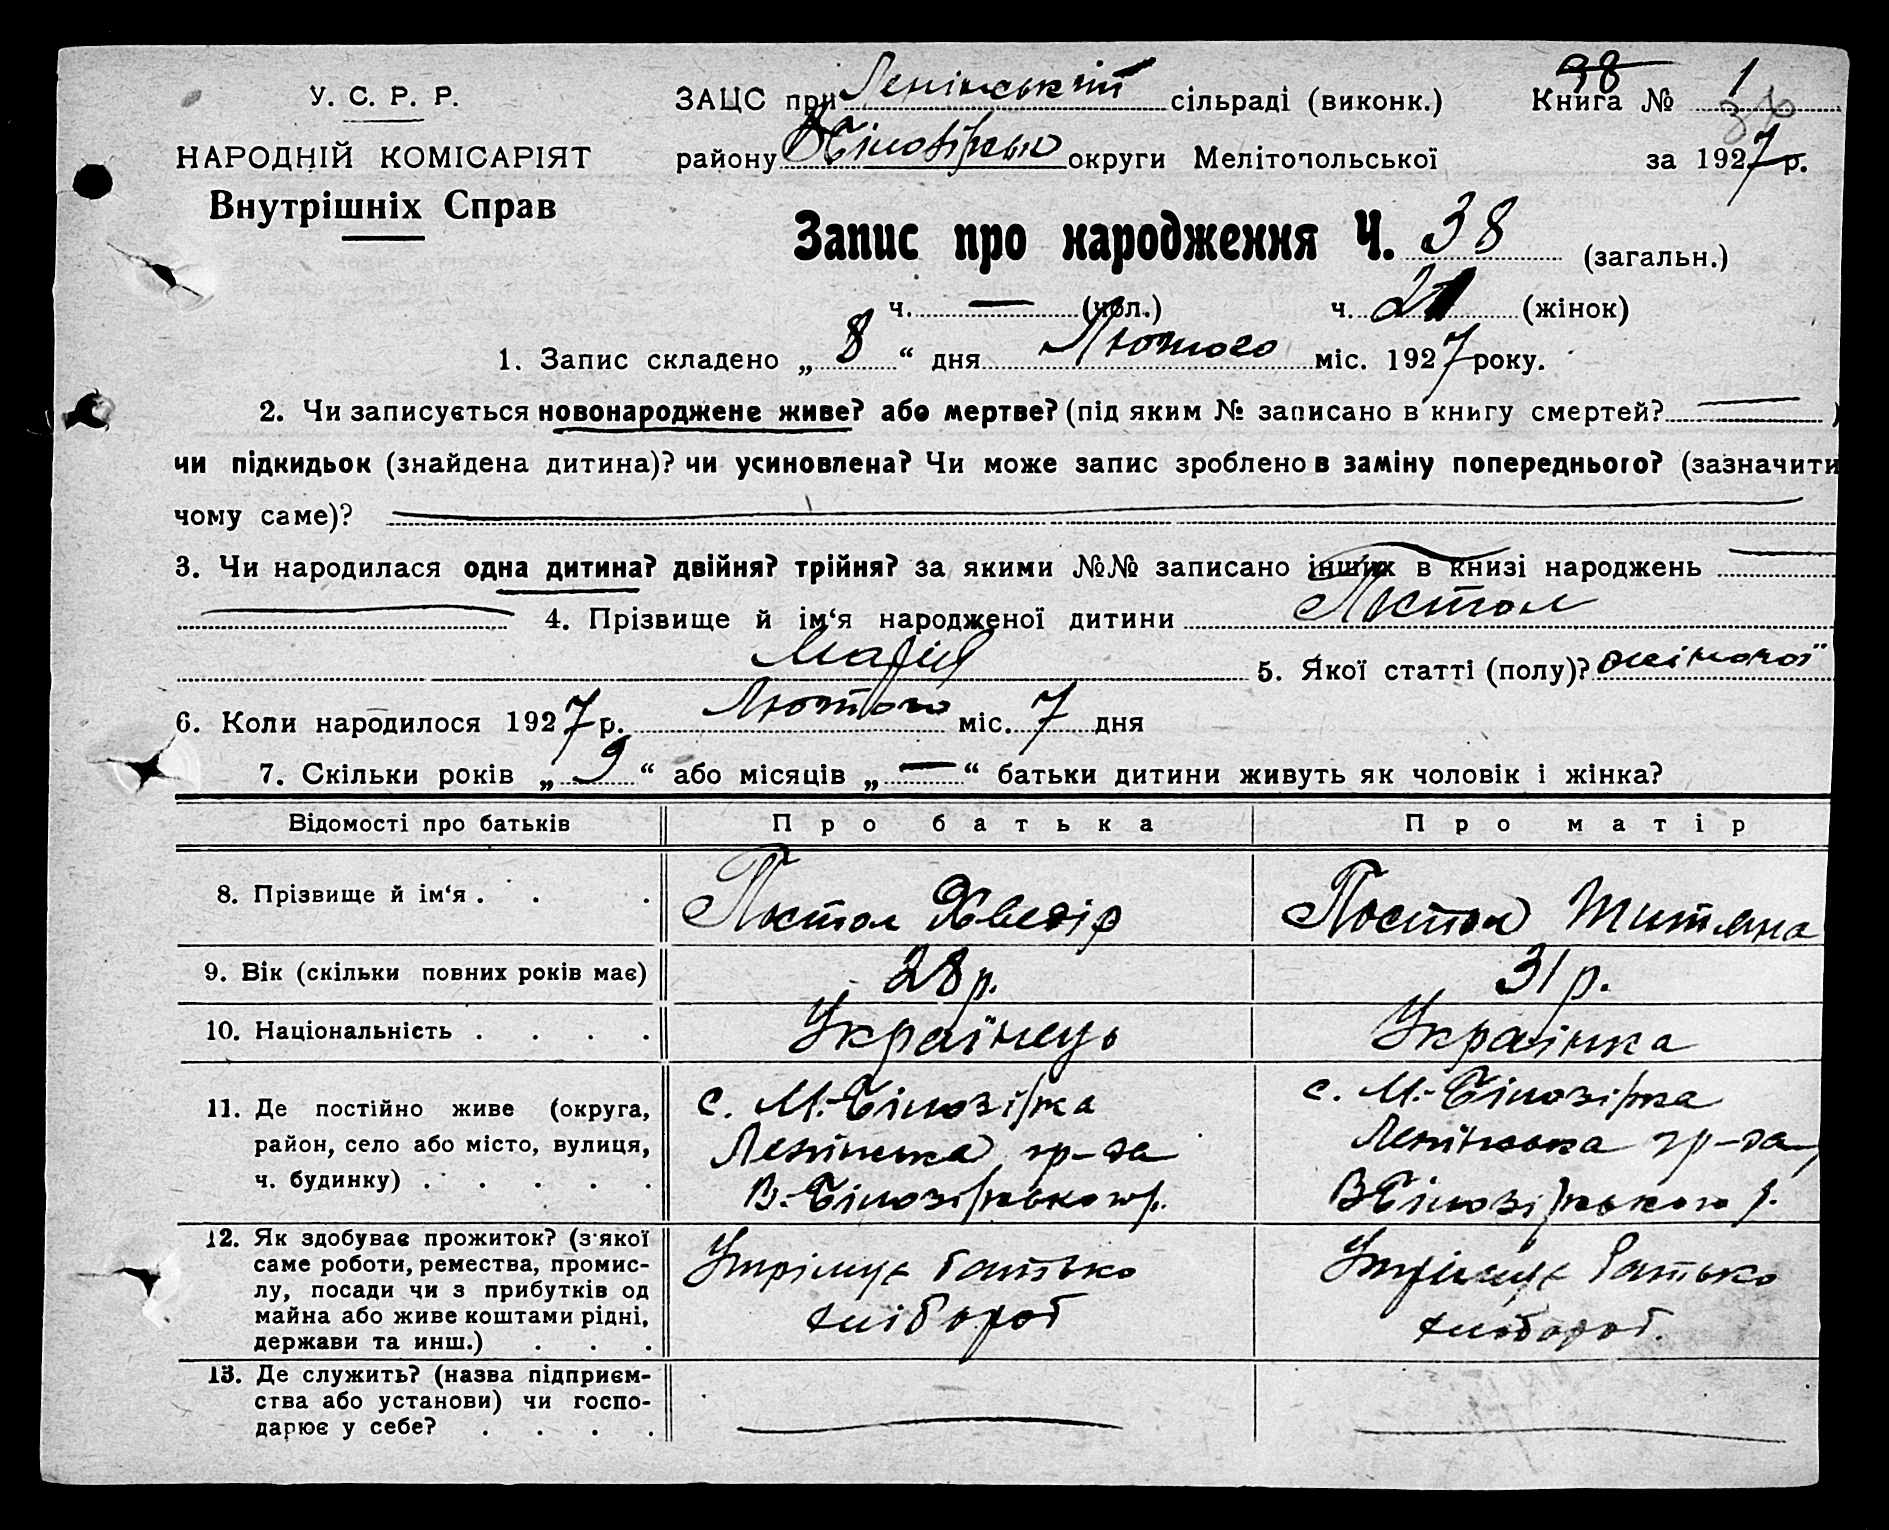 У. С. Р. Р.
НАРОДНІЙ КОМІСАРІЯТ
Внутрішніх Справ
ЗАЦС при Ленінський сільраді (виконк.) Книга № 1
98
району Білозірськ округи Мелітопольської за 1927 р.
Запис про народження Ч. 38 (загальн.)
ч. — (чол.) ч. 21 (жінок)
1. Запис складено „ 8 “ дня Лютого міс. 1927 року.
2. Чи записується новонароджене живе? або мертве? (під яким № записано в книгу смертей? — )
чи підкидьок (знайдена дитина)? чи усиновлена? Чи може запис зроблено в заміну попереднього? (зазначити
чому саме)? —
3. Чи народилася одна дитина? двійня? трійня? за якими №№ записано інших в книзі народжень —
— 4. Прізвище й ім‘я народженої дитини Постол
Марія 5. Якої статті (полу)? жіночої
6. Коли народилося 1927 р. Лютого міс. 7 дня
7. Скільки років „ 9 “ або місяців „ — “ батьки дитини живуть як чоловік і жінка?
Відомості про батьків Про батька Про матір
8. Прізвище й ім‘я . . . Постол Хведір Постол Титяна
9. Вік (скільки повних років має) 28 р. 31 р.
10. Національність . . . . Українець Українка
11. Де постійно живе (округа,
район, село або місто, вулиця,
ч. будинку) . . . . .
с. М.-Білозірка
Ленінська гр-да
В.-Білозірського р.
с. М.-Білозірка
Ленінська гр-да
В Білозірського р.
12. Як здобуває прожиток? (з якої
саме роботи, ремества, промис-
лу, посади чи з прибутків од
майна або живе коштами рідні,
держави та инш.) . . .
Утрімує батько
хлібороб
Утрімує батько
хлібороб.
13. Де служить? (назва підприєм-
ства або установи) чи госпо-
дарює у себе? . . . .
— —